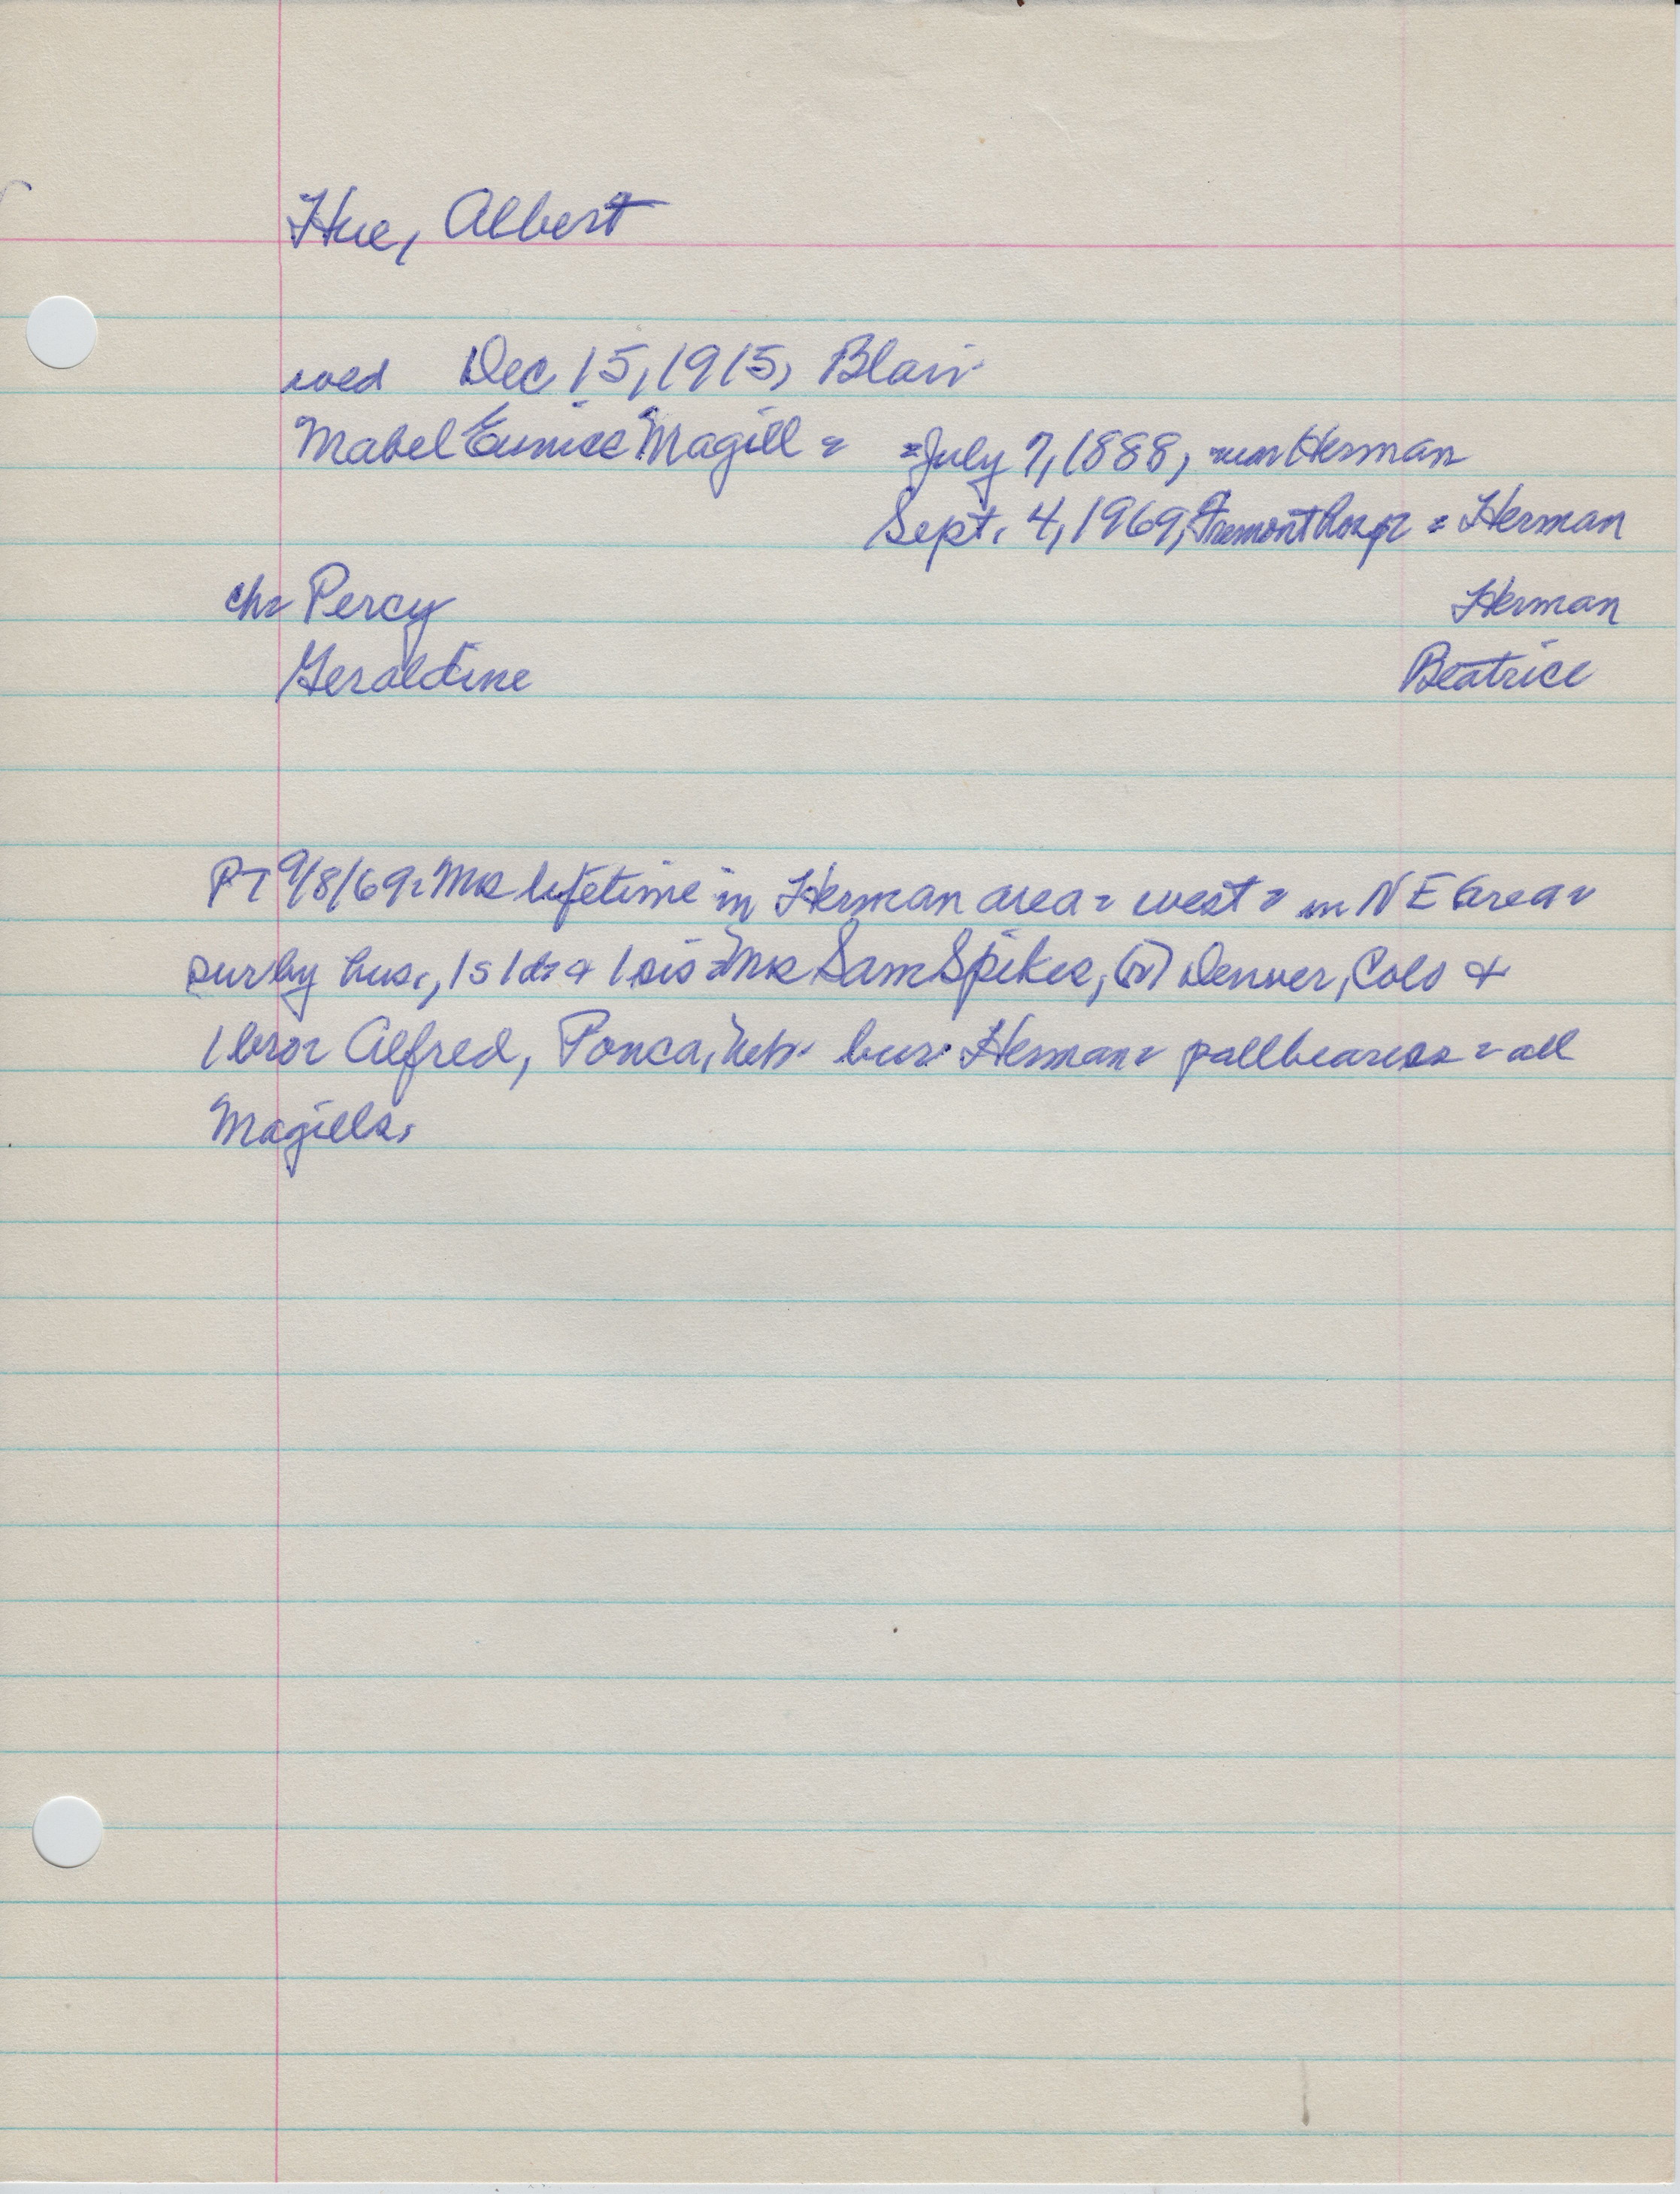 Hue, Albert
wed Dec 15, 1915, Blair
Mabel Eunice Magill = = July 7, 1888, near Herman
Sept. 4, 1969, Fremont hosp = Herman
ch= Percy Herman
Geraldine Beatrice
PT 9/8/69= Mrs lifetime in Herman area = west = in NE area =
sur by hus., 1 s 1 d = + 1 sis = Mrs Sam Spikes, Denver, Colo +
1 bro = Alfred, Ponca, Neb. bur. Herman = pallbearers = all
Magills.